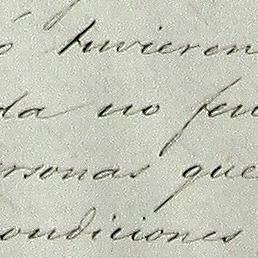 ó tuvieren
da no fu
ersonas que
condiciones